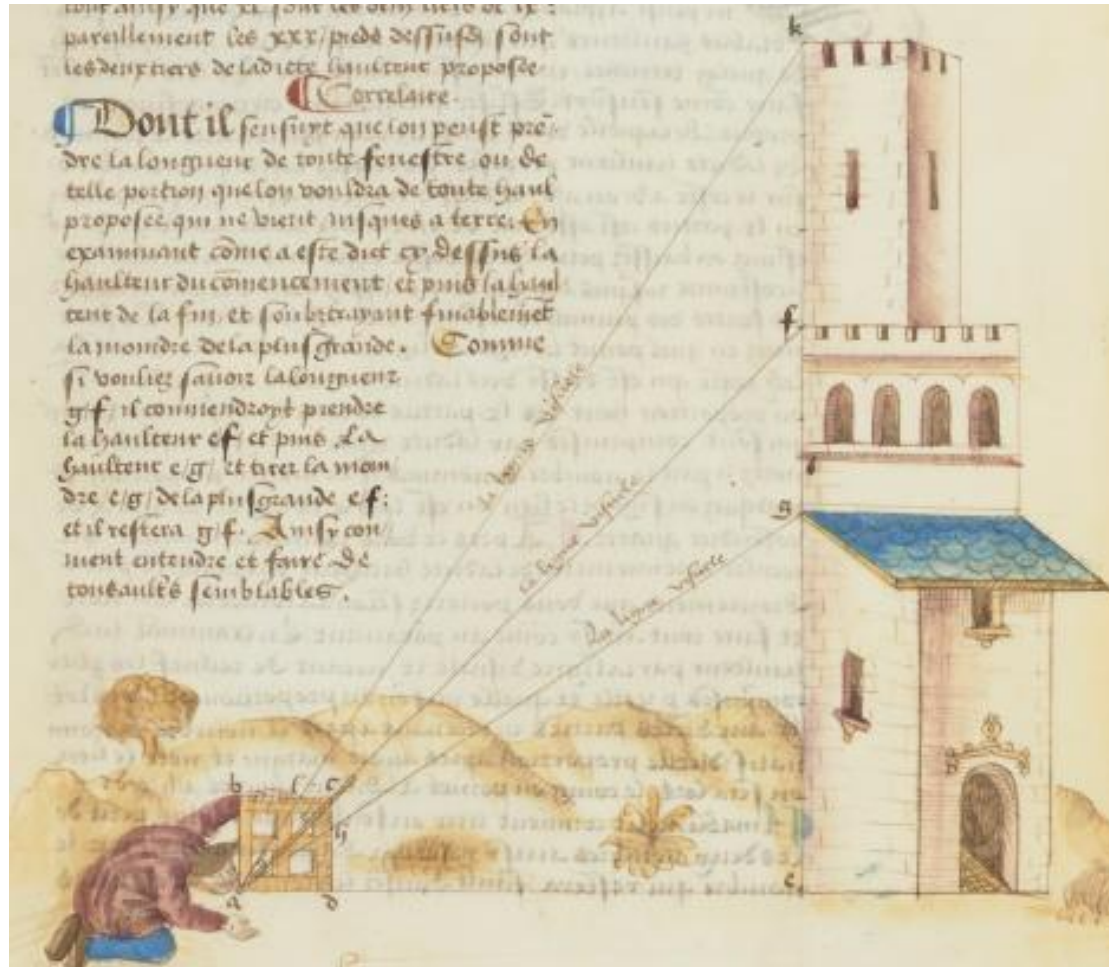 pareillement les xxx piedz dessusdz sont
les deux tiers de ladicte haulteur proposee
Correlaire
Dont il sensuyt que lon peust pren̄
dre la longueur de toute fenestre ou de
telle portion que lon vouldra de toute haul
proposee qui ne vient iusques a terre. En
examinant cōme a este dict cy dessus la
haulteur du cōmencement et puis la haul
teur de la fin et soubztrayant finablemēt
la moindre de la plus grande. Comme
si vouliez sauoir la longueur
g/f il conuiendroyt prendre
la haulteur e/f et puis la
haulteur e/g/ et tirer la moin
dre e/g/ de la plus grande e/f:
et il restera g/f. Ainsy con
uient entendre et faire de
tous aultres semblables.
k
f
g
e
la ligne visuele
la ligne visuele
la ligne visuele
b
c
h
a
d